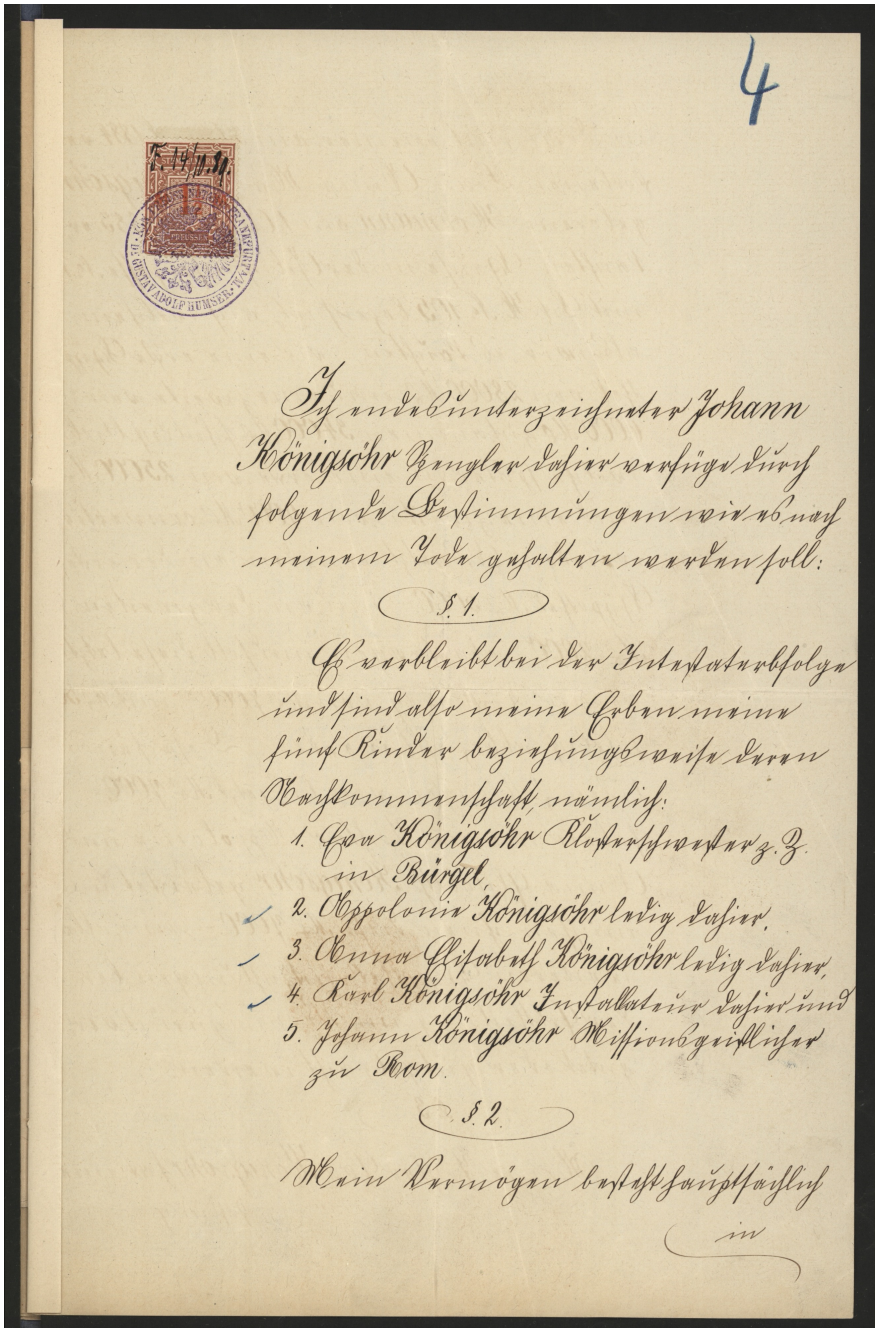 4
F. 14/10.89.
1½
PREUSSEN
FRANKFURT A/M. · Dr. GUSTAV ADOLF HUMSER ·
Ich endesunterzeichneter Johann
Königsöhr Spengler dahier verfüge durch
folgende Bestimmungen wie es nach
meinem Tode gehalten werden soll:
§. 1.
Es verbleibt bei der Intestaterbfolge
und sind also meine Erben meine
fünf Kinder beziehungsweise deren
Nachkommenschaft, nämlich:
1. Eva Königsöhr Klosterschwester z. Z.
in Bürgel,
2. Appolonie Königsöhr ledig dahier,
3. Anna Elisabeth Königsöhr ledig dahier,
4. Karl Königsöhr Installateur dahier und
5. Johann Königsöhr Missionsgeistlicher
zu Rom.
§. 2.
Mein Vermögen besteht hauptsächlich
in